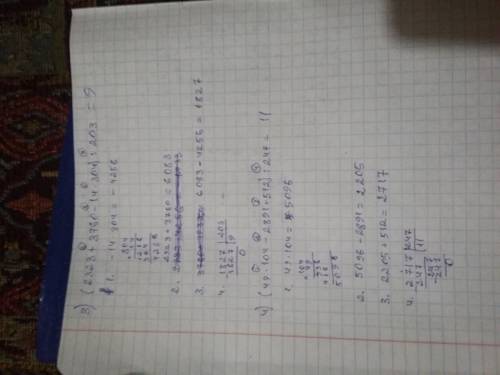 3) (2323 + 3760 - 14 · 304) : 203 = 9
1. 14 · 304 = 4256
304
1216
304
4256
2. 2323 + 3760 = 6083
3. 6083 - 4256 = 1827
4. 1827 | 203
1827 | 9
0
4) (49 · 104 - 2891 + 512) : 247 = 11
1. 49 · 104 = 5096
104
49
936
416
5096
2. 5096 - 2891 = 2205
3. 2205 + 512 = 2717
4. 2717 | 247
247 | 11
247
247
0